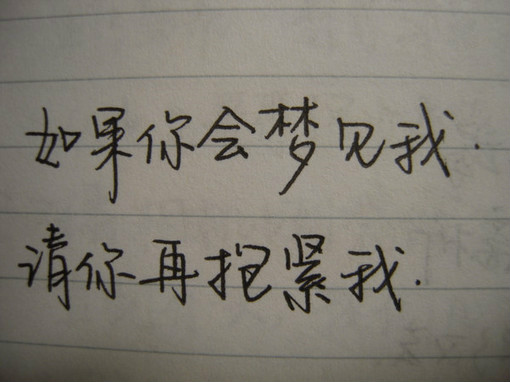 如果你会梦见我.
请你再抱紧我.